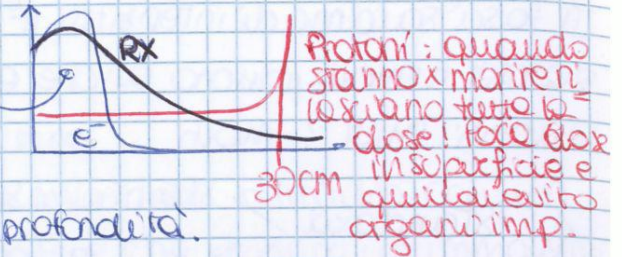 RX
e⁻
30cm
profondità.
Protoni: quando
stanno x morire
lasciano tutta la
dose! Poca dose
in superficie e
quindi evito
organi imp.